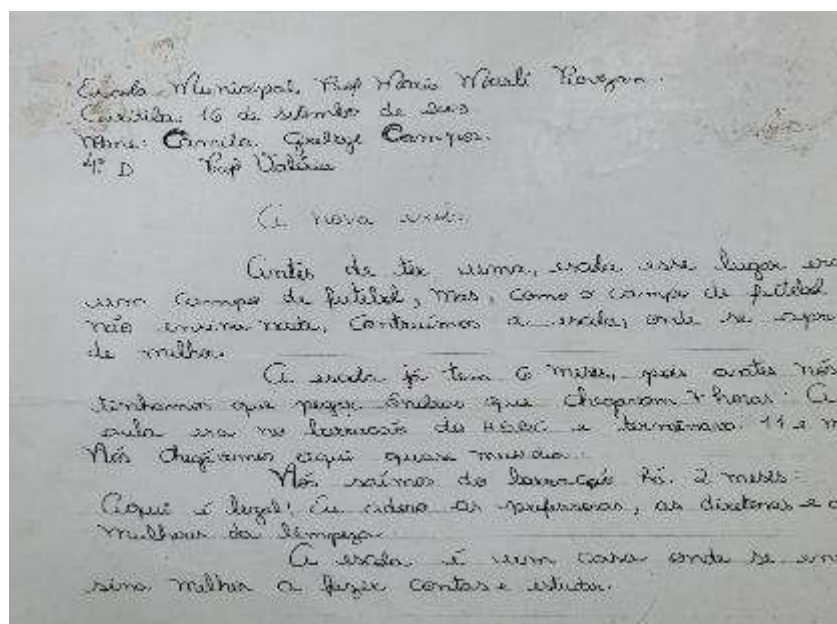 Escola Municipal Profª Maria Marli Piovezan.
Curitiba 16 de setembro de 2003
Nome: Camila Campos.
4ª D Profª Valéria
A nova escola
Antes de ter uma, escola esse lugar era
um campo de futebol, mas, como o campo de futebol
não ensina nada, contruímos a escola, onde se apre
de milhor.
A escola já tem 6 meses, pois antes nós
tinhamos que pegar ônibus que chegavam 7 horas. A
aula era no barracão do HSBC e terminava 11 e m
Nós chegávamos aqui quase meu dia.
Nós saímos do barracão há 2 meses.
Aqui é legal! Eu adoro as professoras, as diretoras e a
mulheres da limpeza.
A escola é um casa onde se en
sina milhor a fazer contas e estudar.